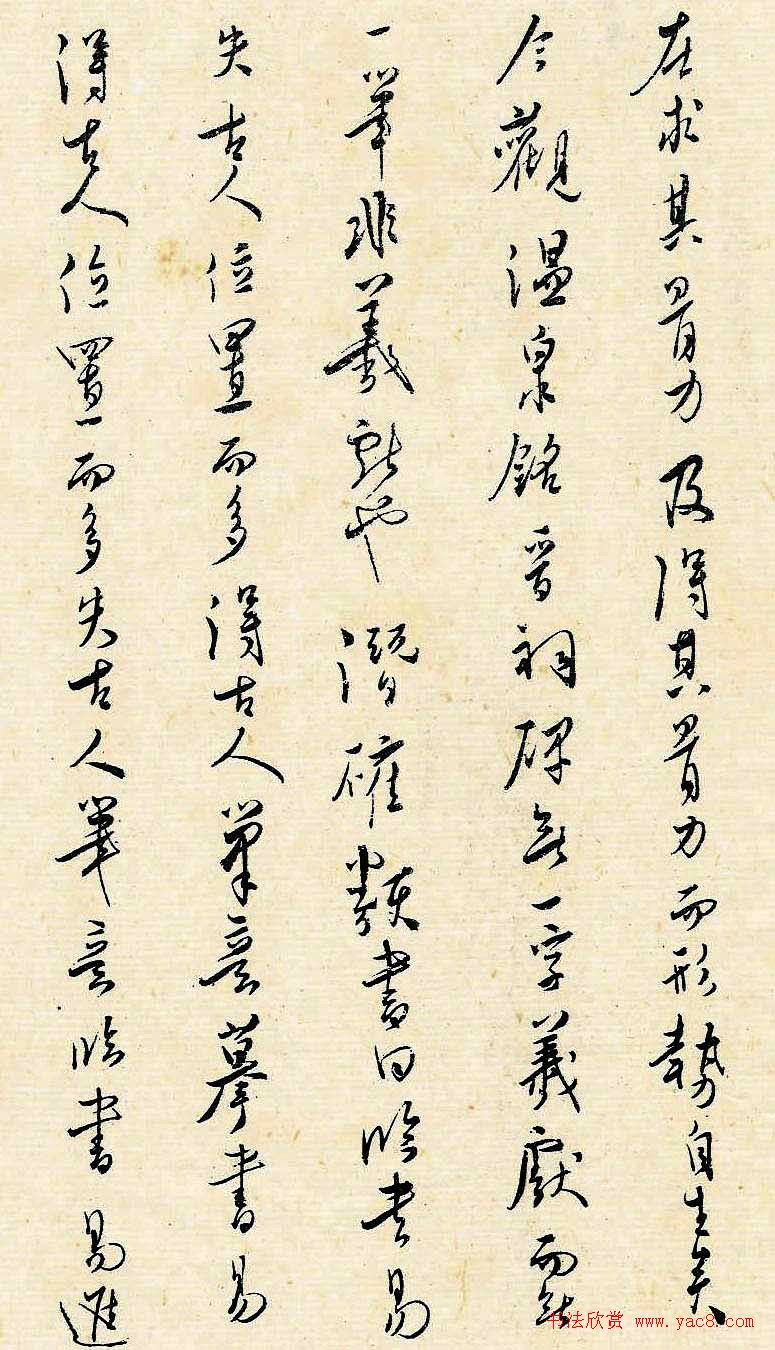 在求其骨力及得其骨力而形勢自生矣
今觀温泉銘晋祠碑無一字羲獻而無
一筆非羲獻也潛確類書曰臨書易
失古人位置而多得古人筆意摹書易
得古人位置而多失古人筆意臨書易進
书法欣赏 www.yac8.com